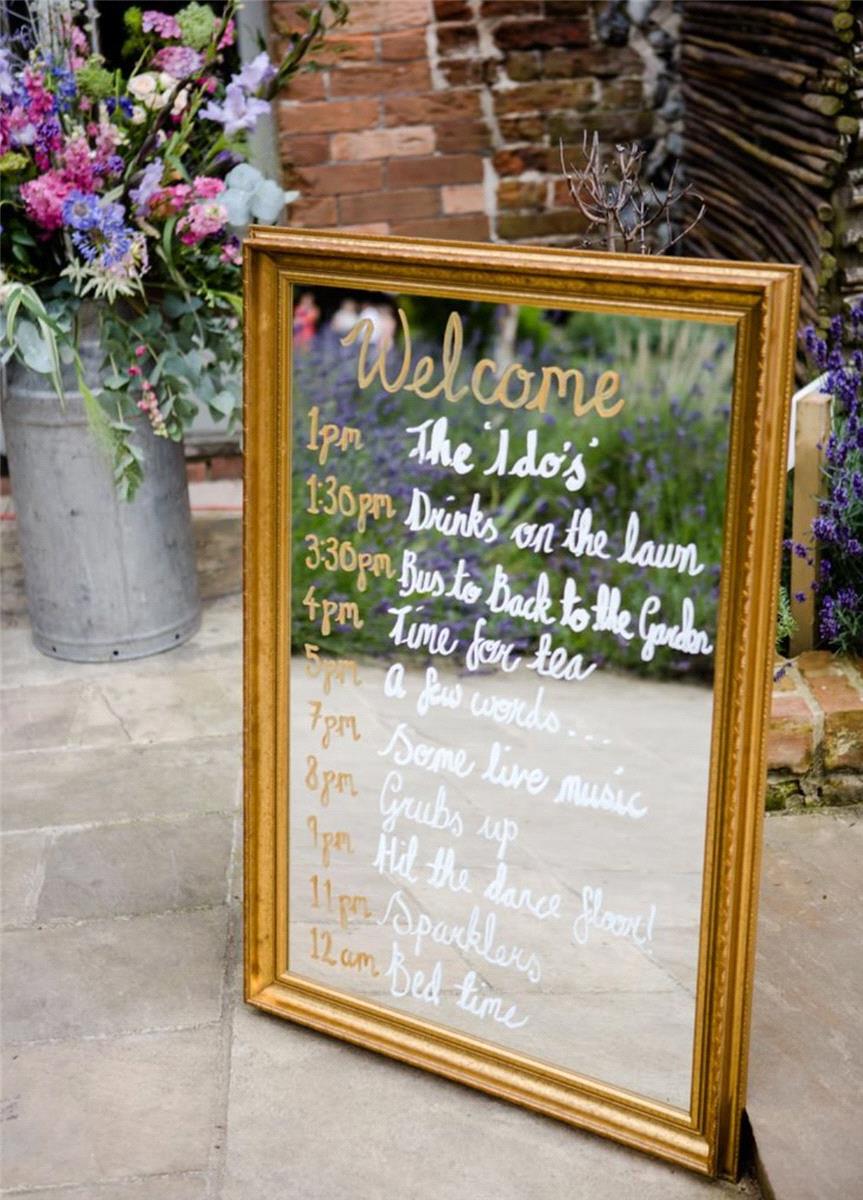 Welcome
1pm The 'I do's'
1:30pm Drinks on the lawn
3:30pm Bus to Back to the Garden
4pm Time for tea
5pm A few words....
7pm Some live music
8pm Grubs up
9pm Hit the dance floor!
11pm Sparklers
12am Bed time